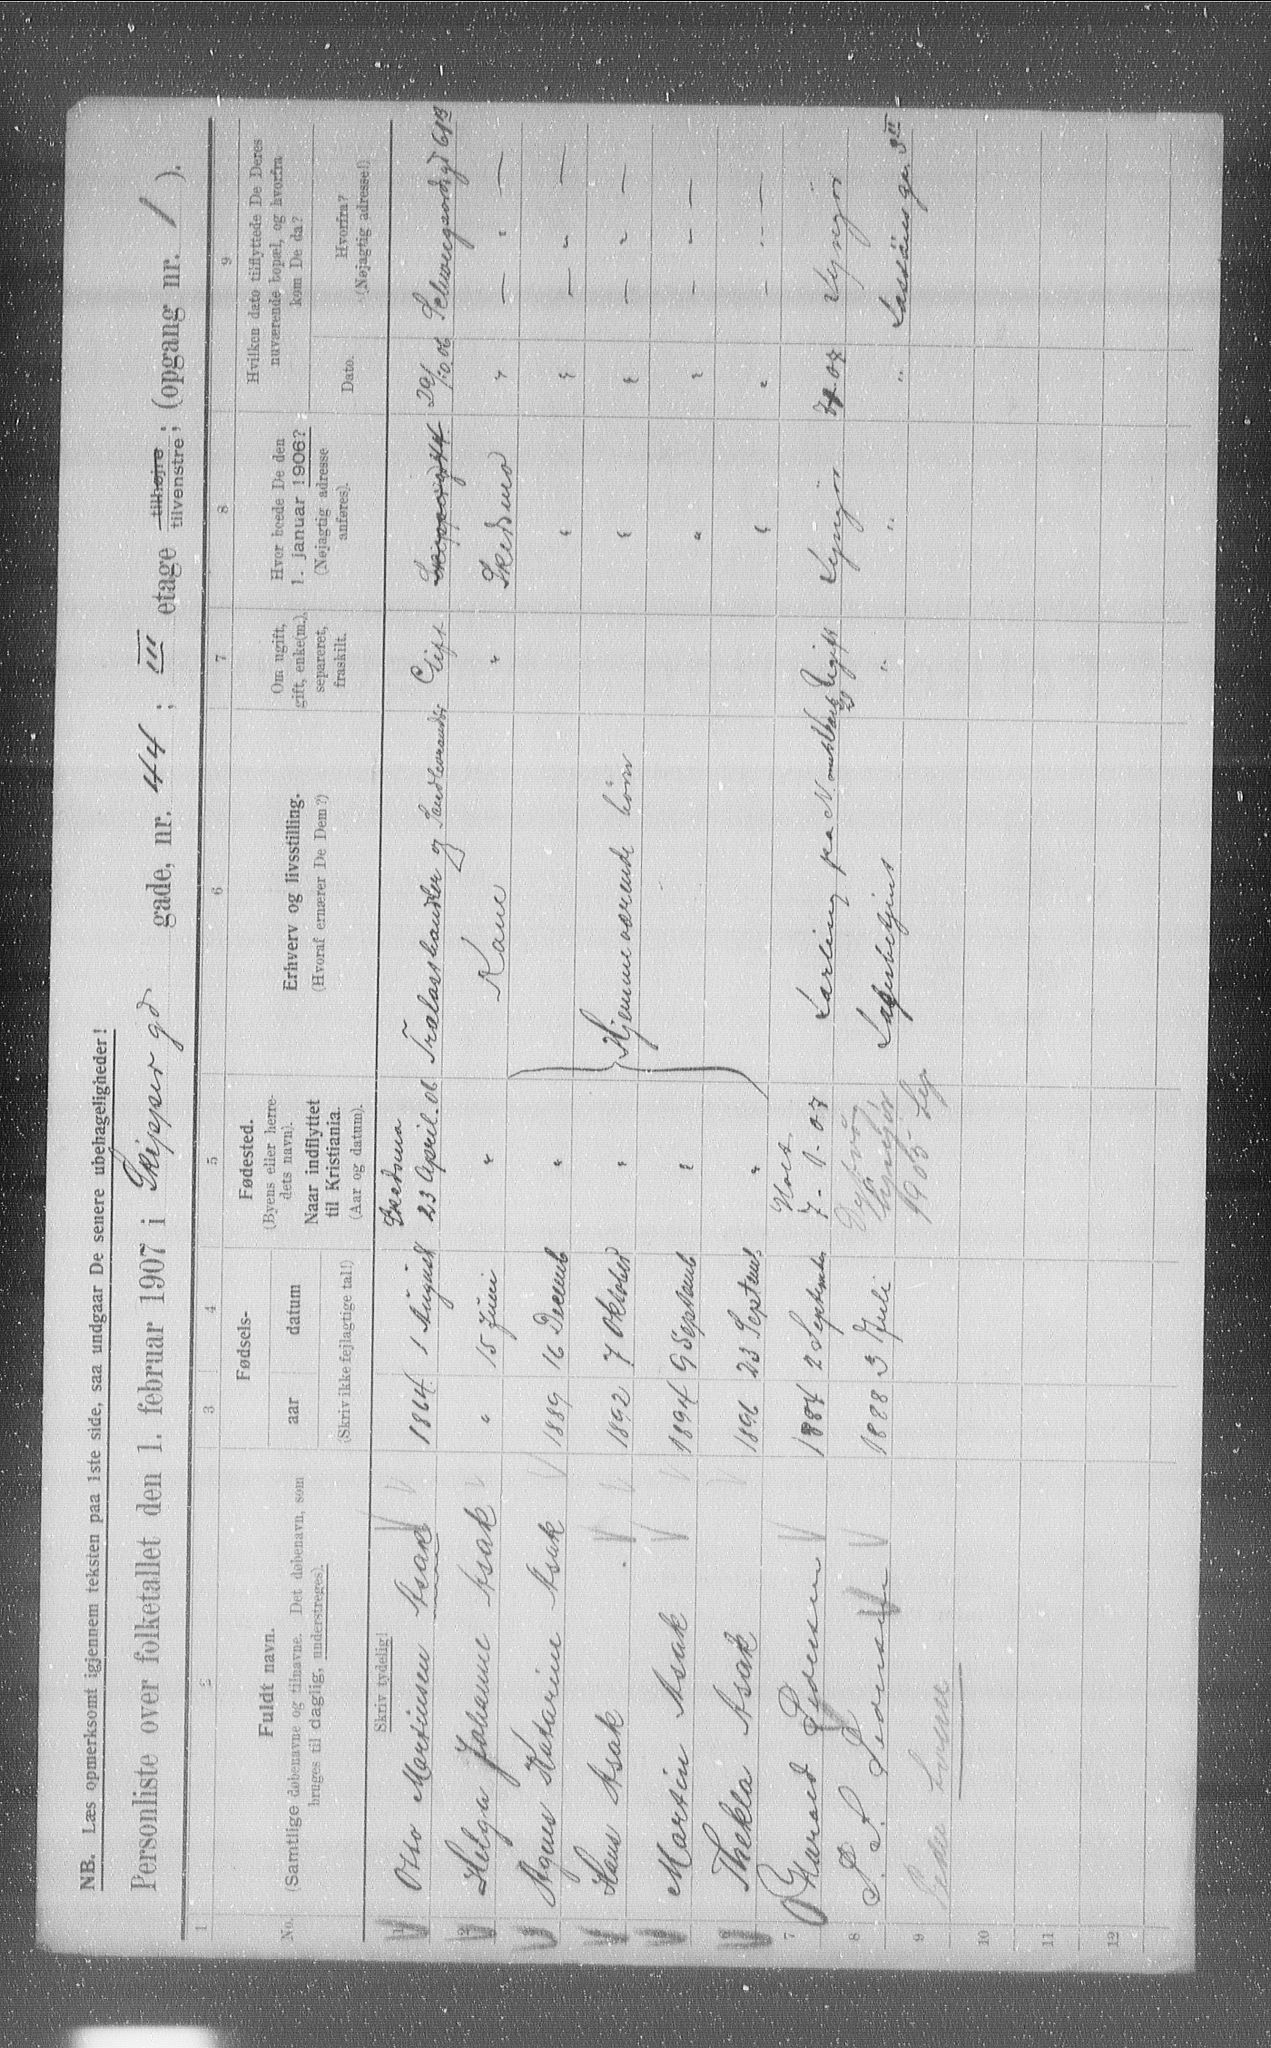 NB. Læs opmerksomt igjennem teksten paa 1ste side, saa undgaar De senere ubehageligheder!
Personliste over folketallet den 1. februar 1907 i Skipper gd gade, nr. 44; III etage tilhøjre tilvenstre; (opgang nr. 1).
1 2 3 4 5 6 7 8 9
No.
Fuldt navn.
(Samtlige døbenavne og tilnavne. Det døbenavn, som
bruges til daglig, understreges).
Fødsels-
aar datum
(Skriv ikke fejlagtige tal!)
Fødested.
(Byens eller herre-
dets navn).
Naar indflyttet
til Kristiania.
(Aar og datum).
Erhverv og livsstilling.
(Hvoraf ernærer De Dem?)
Om ugift,
gift, enke(m.),
separeret,
fraskilt.
Hvor boede De den
1. januar 1906?
(Nøjagtig adresse
anføres).
Hvilken dato tilflyttede De Deres
nuværende bopæl, og hvorfra
kom De da?
Dato.
Hvorfra?
(Nøjagtig adresse!)
Skriv tydelig!
1 Otto Martinsen Asak 1864 1 August Skedsmo 23 April. 06 Trælasthandler og Gift Skippergd 44 20/10.06
2 Helga Johanne Asak " 15 Juni " Kone " Skedsmo " — " —
3 Agnes Katarine Asak 1889 16 Decemb " " " — " —
4 Hans Asak 1892 7 Oktober " Hjemmeværende børn " " — " —
5 Martin Asak 1894 9 Septemb " " " — " —
6 Thekla Asak 1896 23 Septemb. " " " — " —
7 Harald Pedersen 1884 2 September Holt 7-1-07 Lærling paa Ugift Lyngør Lyngør
8 1888 3 Juli 1905 " " "
9
10
11
12